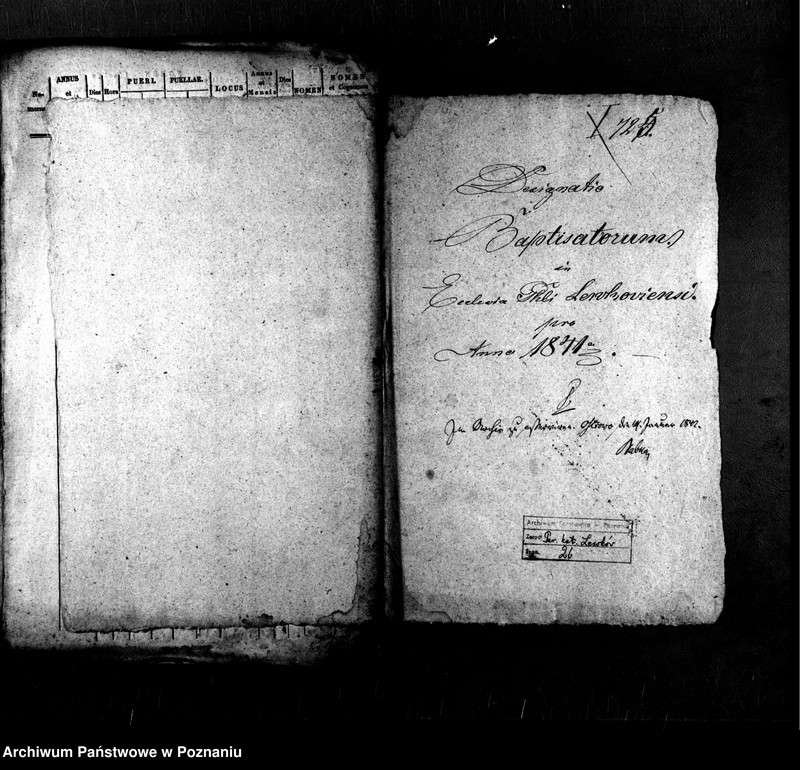 No.
ANNUS
et
Dies
Hora
PUERI.
PUELLAE.
LOCUS
Annus
et
Mensis
Dies
NOMEN
NOMEN
et Cognomen
I 72
Designatio
Baptisatorum
in
Ecclesia Fkli Lewkoviensi.
pro
Anno 1841
Im Archiv zu asserviren. Ostrowo, den Januar 1842.
Archiwum Państwowe w Poznaniu
Zespół Par. kat. Lewków
Sygn. 26
Archiwum Państwowe w Poznaniu